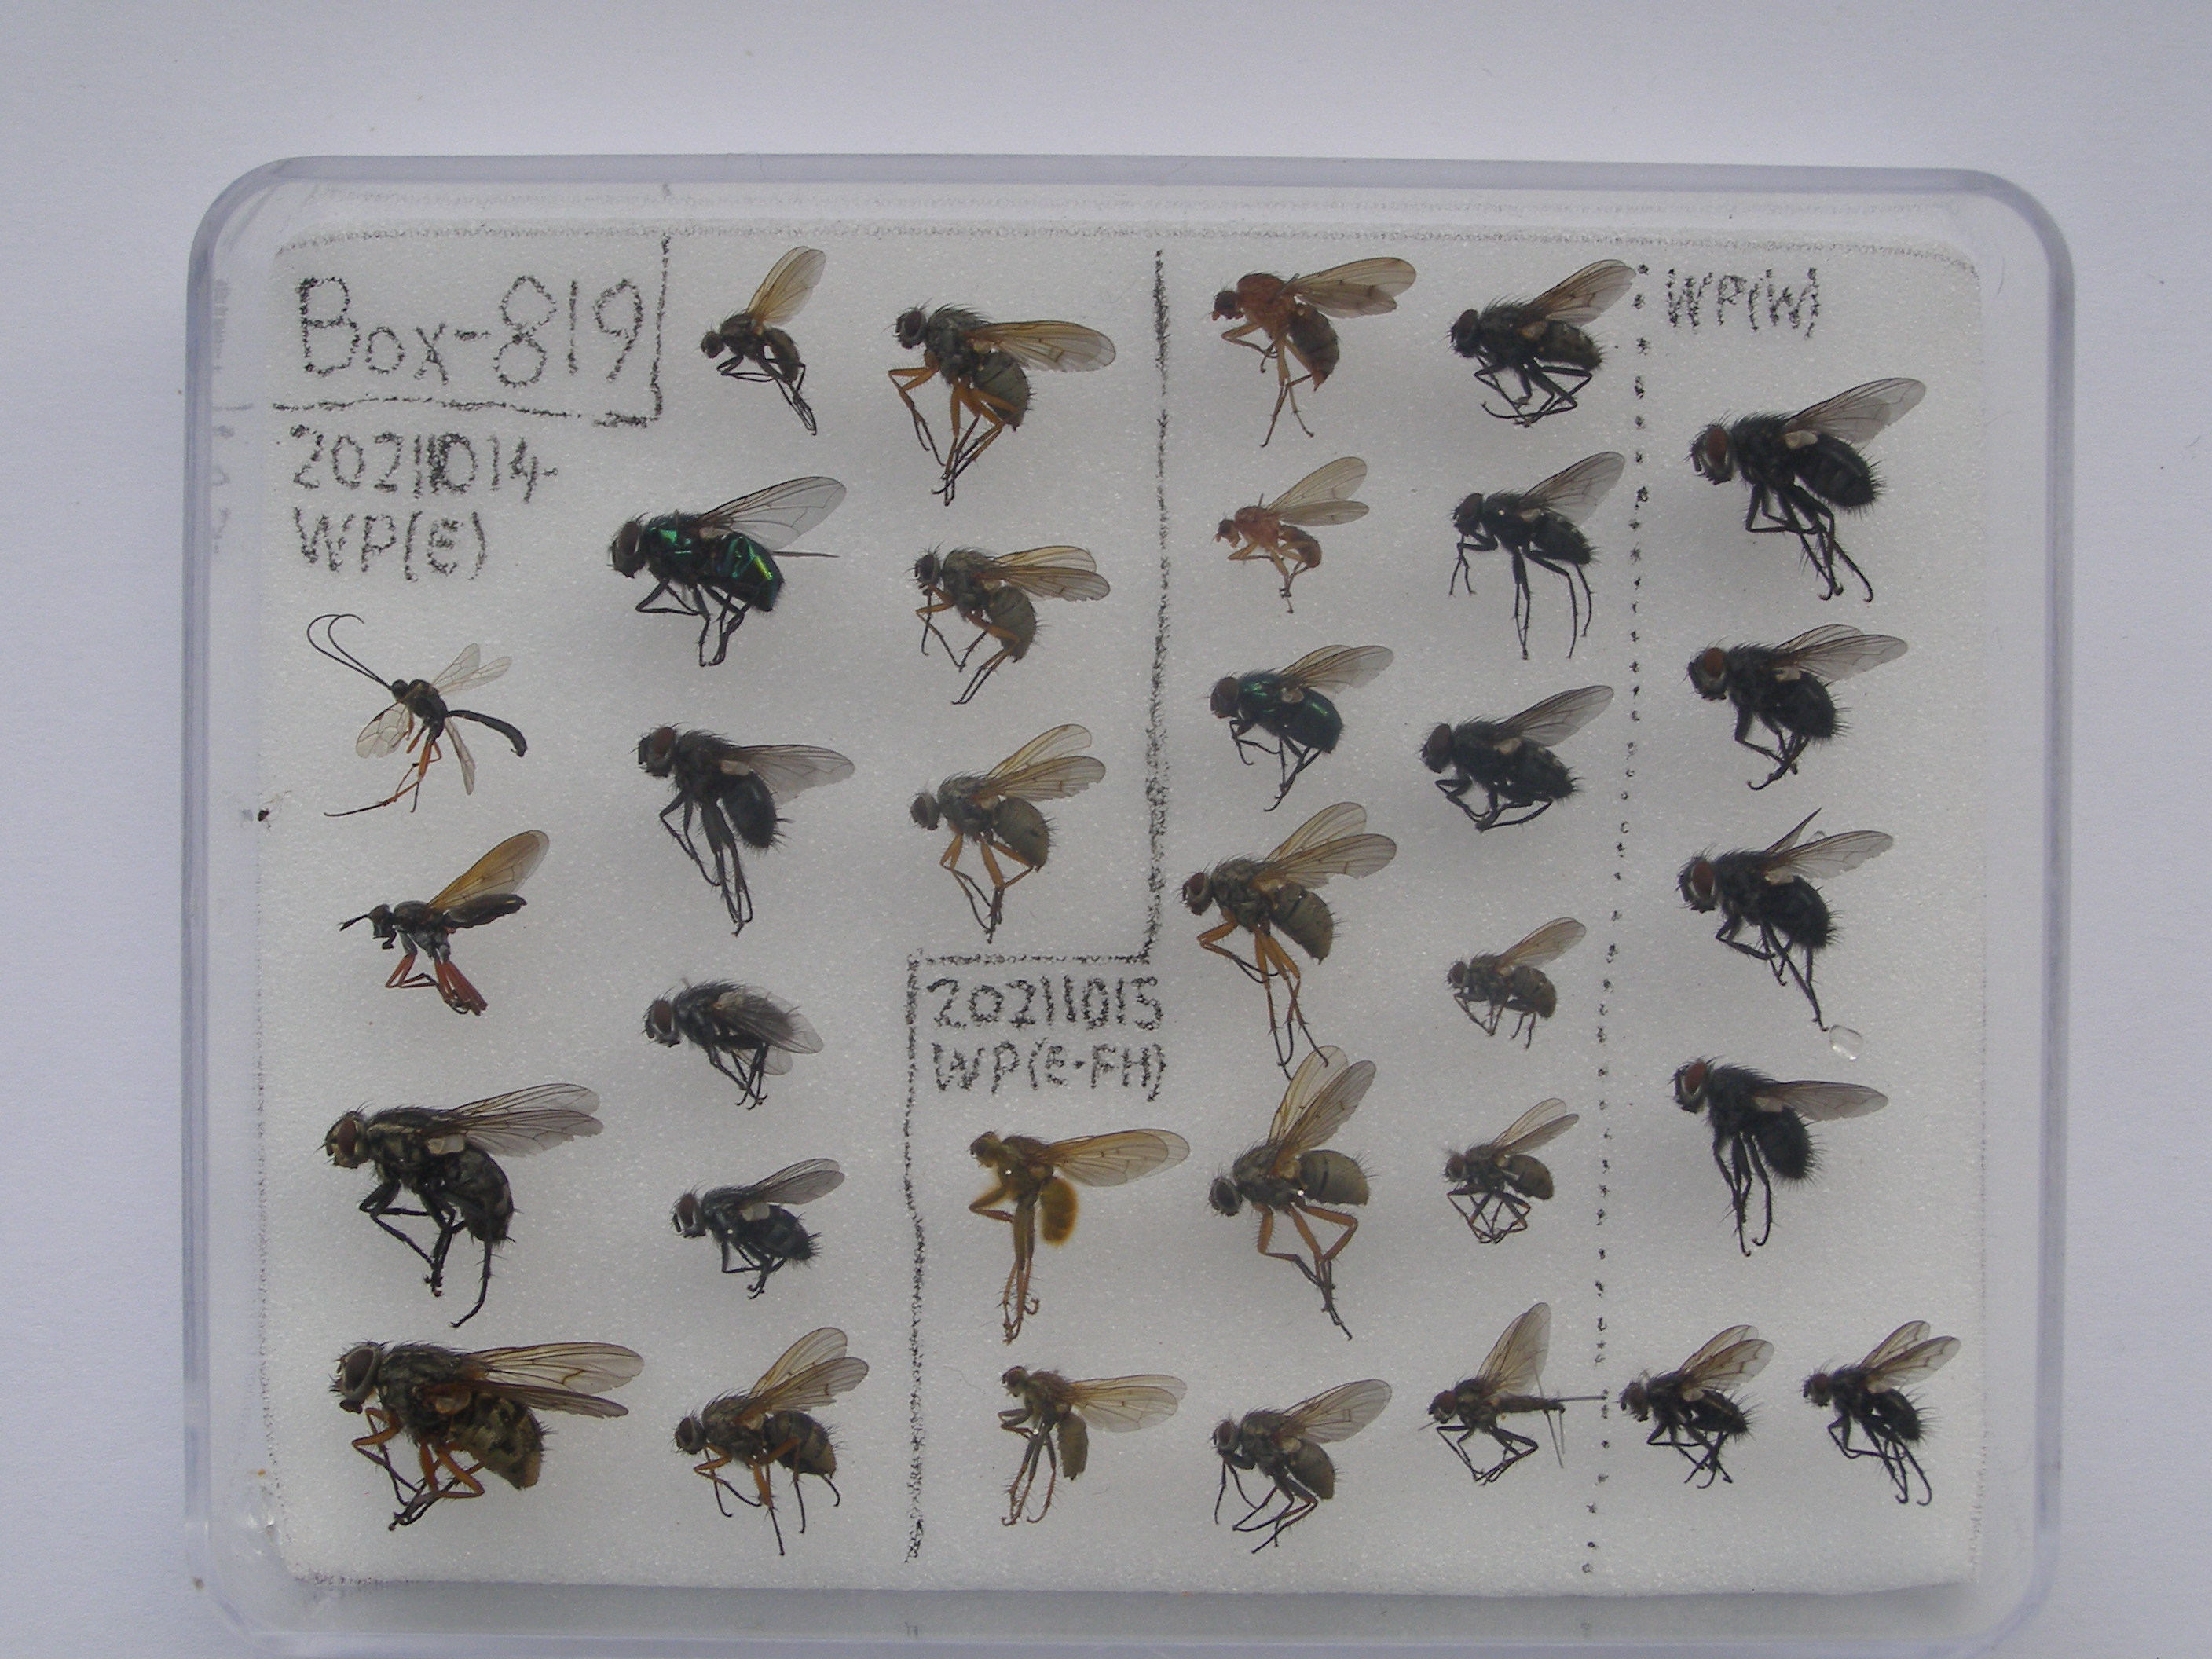 Box-819
20211014-
WP(E)
20211015
WP(E-FH)
WP(W)